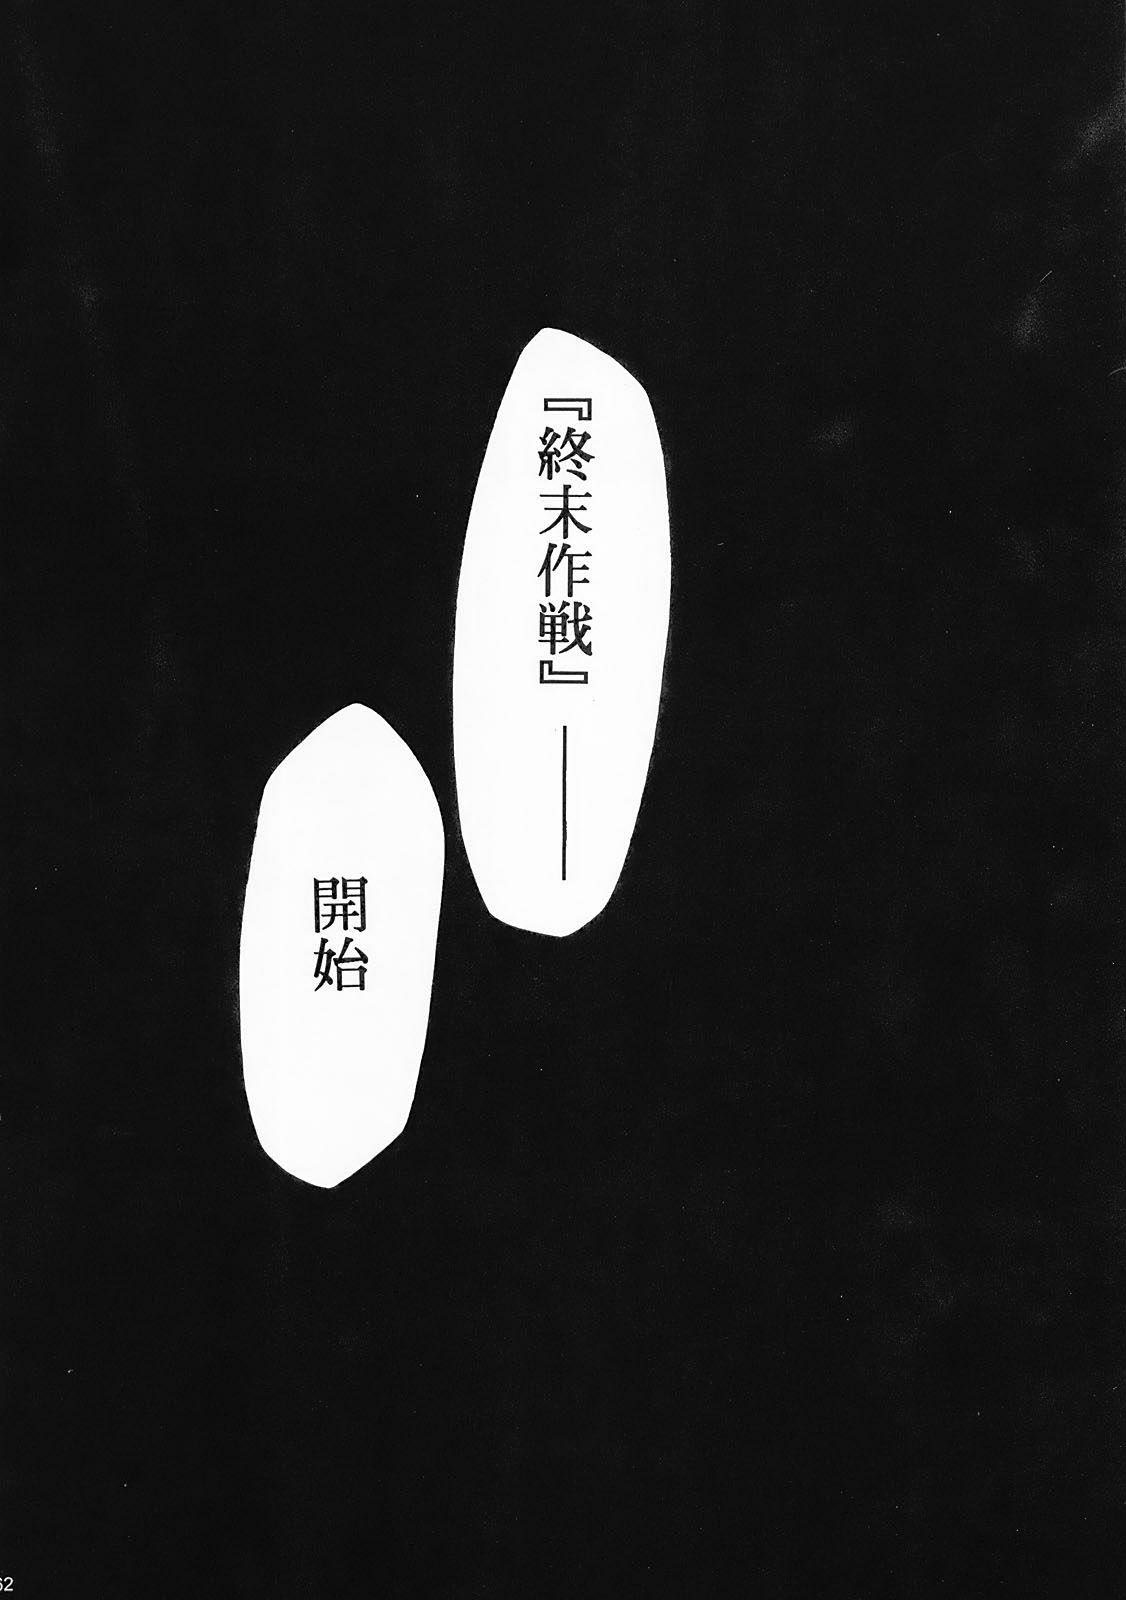 『終末作戦』――
開始
62